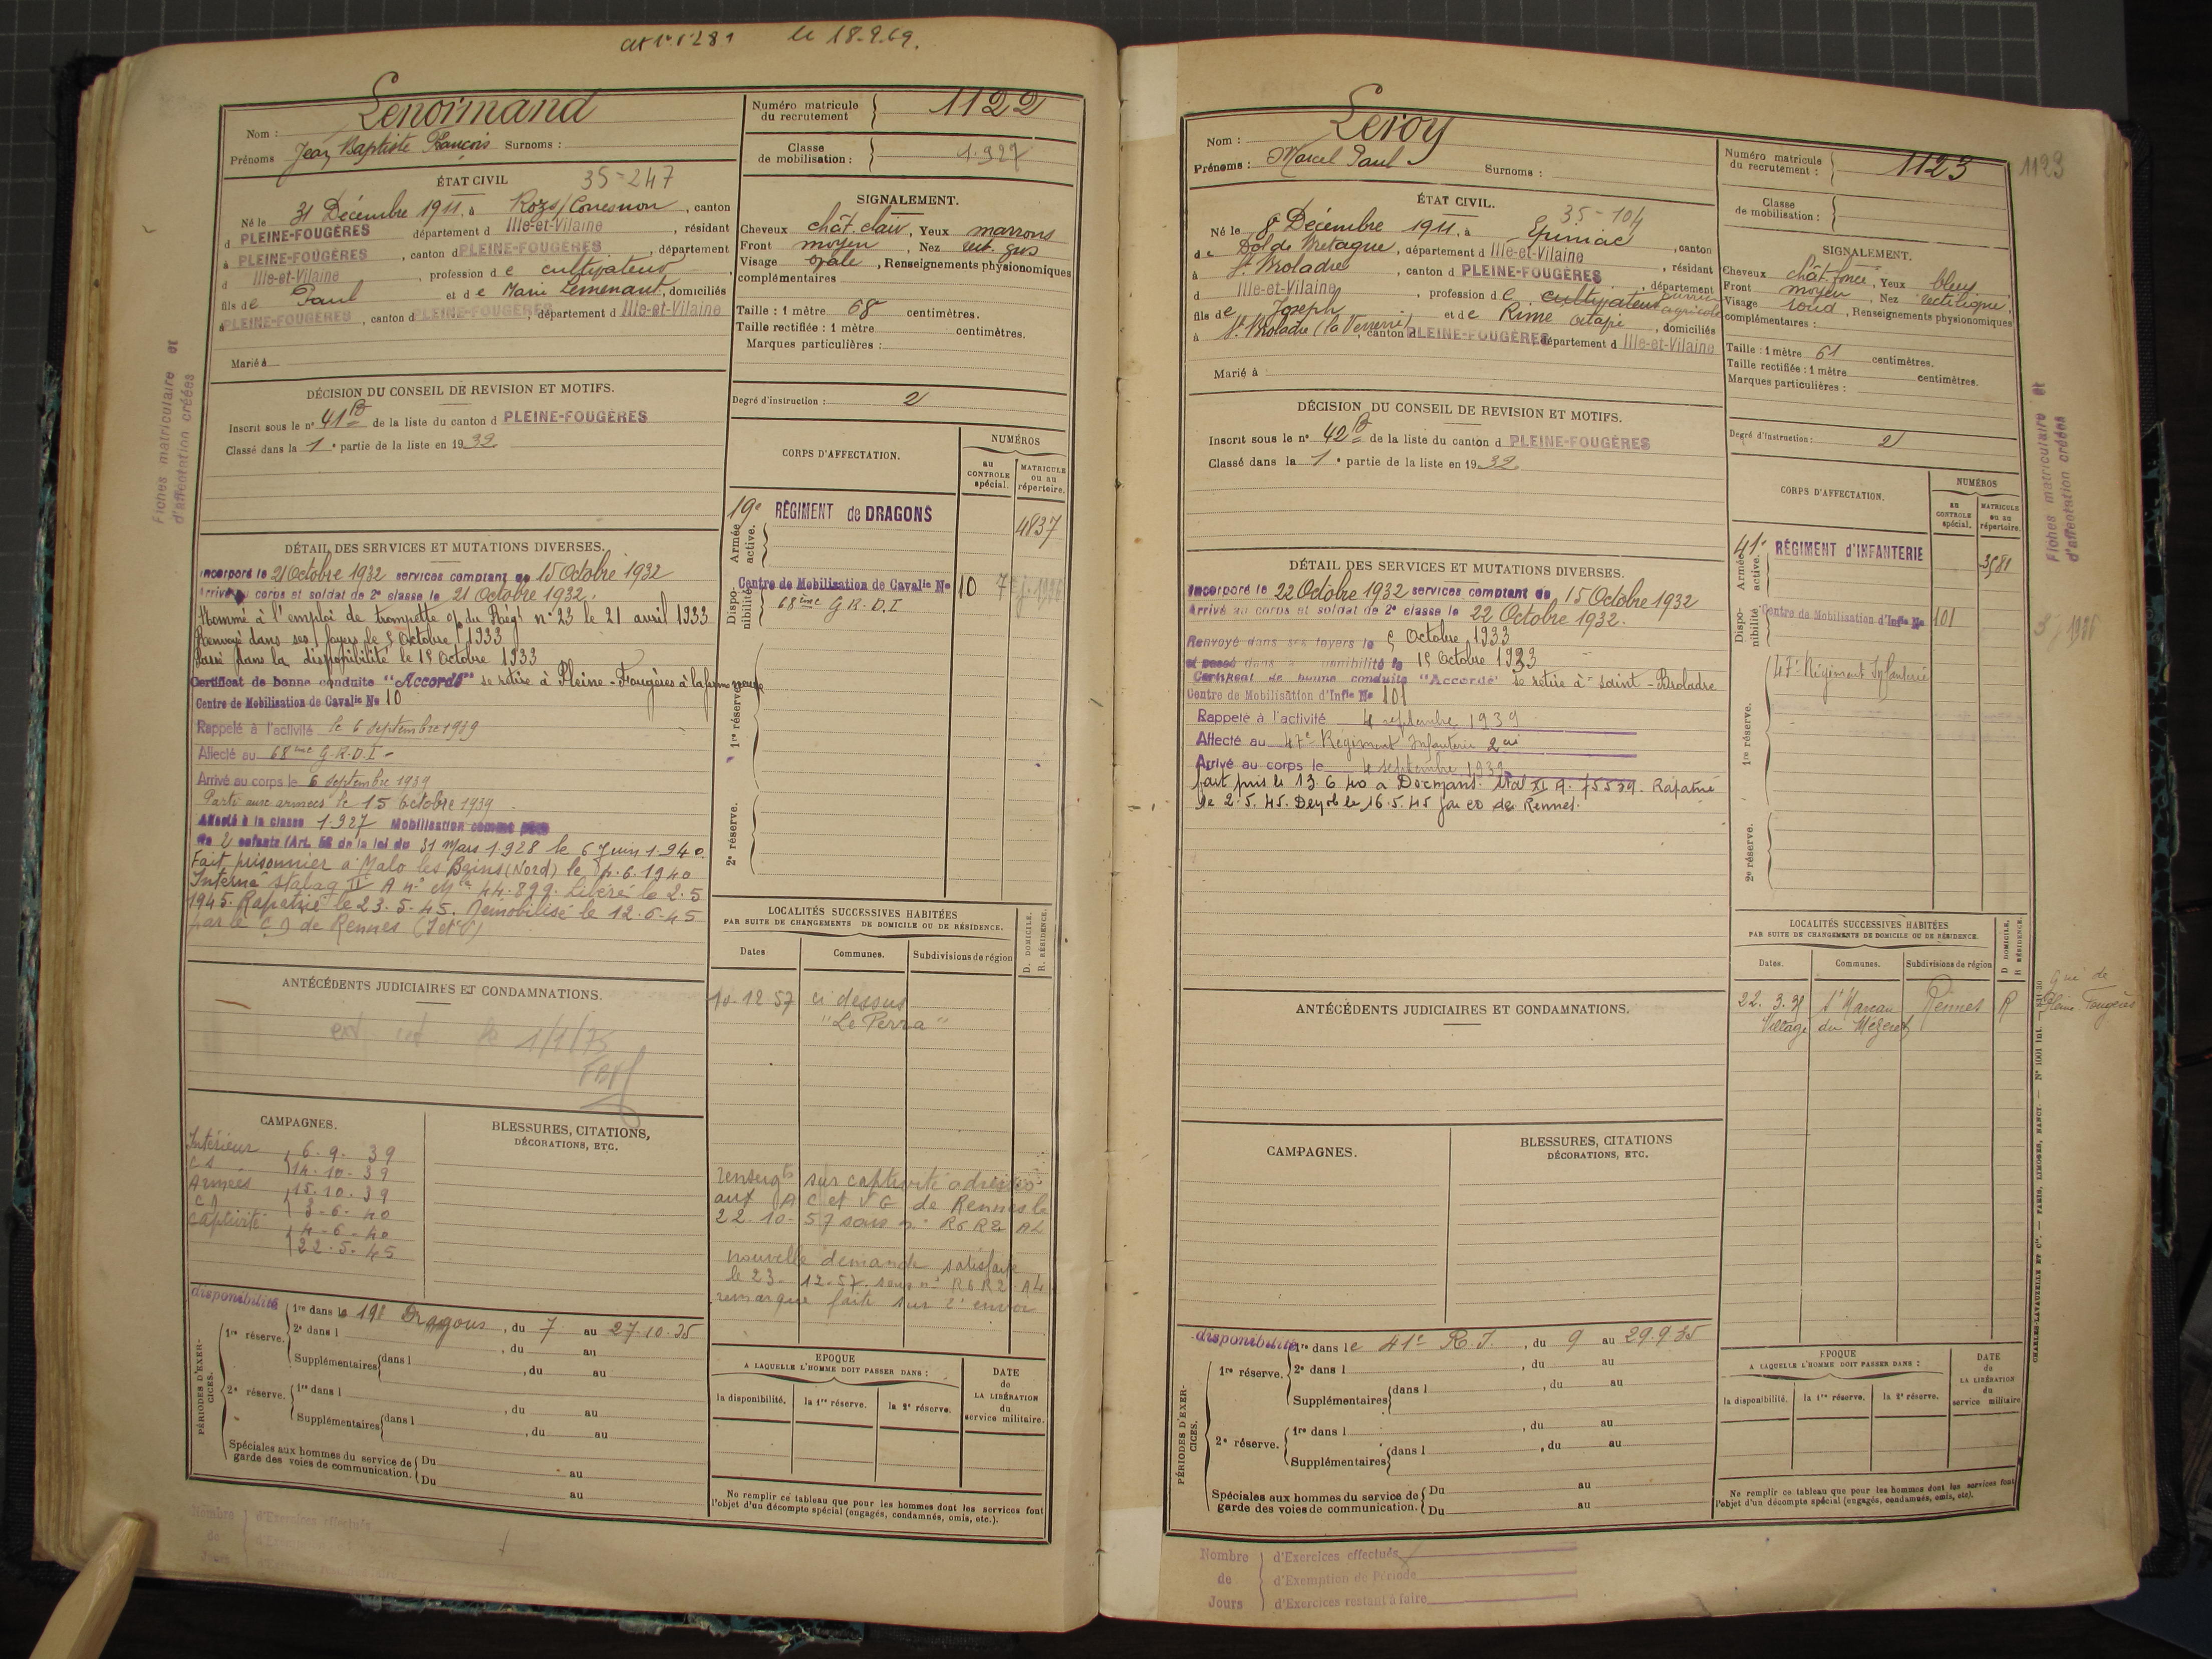 le 18.9.69.
Nom : Lenormand
Prénoms Jean Baptiste François Surnoms :
Numéro matricule du recrutement 1122
Classe de mobilisation : 1.927
ÉTAT CIVIL 35-247
Né le 31 Décembre 1911, à Rozs/Couesnon, canton
d PLEINE-FOUGÈRES département d Ille-et-Vilaine, résidant
à PLEINE-FOUGÈRES, canton d PLEINE-FOUGÈRES, département
d Ille-et-Vilaine, profession de cultivateur,
fils de Paul et de Marie Lemenant, domiciliés
à PLEINE-FOUGÈRES, canton d PLEINE-FOUGÈRES, département d Ille-et-Vilaine
Marié à
SIGNALEMENT.
Cheveux chât. clair, Yeux marrons
Front moyen, Nez gros
Visage ovale, Renseignements physionomiques
complémentaires
Taille : 1 mètre 68 centimètres.
Taille rectifiée : 1 mètre centimètres.
Marques particulières :
Degré d'instruction : 2
Fiches matriculaire et
d'affectation créées
DÉCISION DU CONSEIL DE REVISION ET MOTIFS.
Inscrit sous le n° 41 B de la liste du canton d PLEINE-FOUGÈRES
Classé dans la 1e partie de la liste en 1932
CORPS D'AFFECTATION.
NUMÉROS
au CONTROLE spécial.
MATRICULE ou au répertoire.
Armée active.
19e RÉGIMENT de DRAGONS 4837
Disponibilité
Centre de Mobilisation de Cavalie No 10
68ème G.R.D.I
1re réserve.
2e réserve.
DÉTAIL DES SERVICES ET MUTATIONS DIVERSES.
Incorporé le 21 Octobre 1932 services comptant du 15 Octobre 1932
Arrivé au corps et soldat de 2e classe le 21 Octobre 1932.
Nommé à l'emploi de trompette o/ du Régt n° 23 le 21 avril 1933
Renvoyé dans ses foyers le 5 Octobre 1933
Passé dans la disponibilité le 15 Octobre 1933
Certificat de bonne conduite "Accordé" se retire à Pleine-Fougères à la ferme neuve
Centre de Mobilisation de Cavalie No 10
Rappelé à l'activité le 6 septembre 1939
Affecté au 68ème G.R.D.I-
Arrivé au corps le 6 septembre 1939
Parti aux armées le 15 octobre 1939
Affecté à la classe 1.927 Mobilisation comme père
de 2 enfants (Art. 58 de la loi du 31 Mars 1.928 le 6 Juin 1.940
Fait prisonnier à Malo les Bains (Nord) le 4.6.1940
Interné stalag II A n° Mle 44.899. Libéré le 2.5
1945. Rapatrié le 23.5.45. Démobilisé le 12.6.45
par le C D de Rennes (I et V)
LOCALITÉS SUCCESSIVES HABITÉES
PAR SUITE DE CHANGEMENTS DE DOMICILE OU DE RÉSIDENCE.
Dates Communes. Subdivisions de région
D. DOMICILE.
R. RÉSIDENCE.
10-12 57 ci dessus
"Le Perra"
ANTÉCÉDENTS JUDICIAIRES ET CONDAMNATIONS.
le 1/1/75
CAMPAGNES.
Intérieur 6.9.39
CS 14.10.39
Armées 15.10.39
3-6-40
Captivité 4-6-40
22.5.45
BLESSURES, CITATIONS,
DÉCORATIONS, ETC.
renseigts sur captivité adressés
aux A C et V G de Rennes le
22.10.57 sous n° R6 R2 AL
nouvelle demande satisfaite
le 23-12.57. sous n° R6 R2 - AL
remarque faite sur 2e envoi
PÉRIODES D'EXERCICES.
disponibilité 1re dans le 19e Dragons, du 7 au 27.10.35
1re réserve. 2e dans l , du au
Supplémentaires dans l , du au
2e réserve. 1re dans l , du au
Supplémentaires dans l , du au
Spéciales aux hommes du service de Du au
garde des voies de communication. Du au
EPOQUE
A LAQUELLE L'HOMME DOIT PASSER DANS :
la disponibilité. la 1re réserve. la 2e réserve.
DATE de LA LIBÉRATION du service militaire.
Ne remplir ce tableau que pour les hommes dont les services font
l'objet d'un décompte spécial (engagés, condamnés, omis, etc.).
Nombre d'Exercices effectués
de
Jours
Nom : Leroy
Prénoms : Marcel Paul Surnoms :
Numéro matricule du recrutement : 1123
1123
Classe de mobilisation :
ÉTAT CIVIL. 35-104
Né le 8 Décembre 1911, à Epiniac, canton
de Dol de Bretagne, département d Ille-et-Vilaine, résidant
à St Broladre, canton d PLEINE-FOUGÈRES, département
d Ille-et-Vilaine, profession de cultivateur ouvrier agricole
fils de Joseph et de Rime Octavie, domiciliés
à St Broladre (la Verrerie), canton d PLEINE-FOUGÈRES, département d Ille-et-Vilaine
Marié à
SIGNALEMENT.
Cheveux chât. foncé, Yeux bleus
Front moyen, Nez rectiligne,
Visage rond, Renseignements physionomiques
complémentaires :
Taille : 1 mètre 61 centimètres.
Taille rectifiée : 1 mètre centimètres.
Marques particulières :
Degré d'instruction : 2
Fiches matriculaire et
d'affectation créées
DÉCISION DU CONSEIL DE REVISION ET MOTIFS.
Inscrit sous le n° 42 B de la liste du canton d PLEINE-FOUGÈRES
Classé dans la 1e partie de la liste en 1932
CORPS D'AFFECTATION.
NUMÉROS
au CONTROLE spécial.
MATRICULE ou au répertoire.
Armée active.
41e RÉGIMENT d'INFANTERIE 3581
Disponibilité
Centre de Mobilisation d'Infie No 101
47e Régiment Infanterie
1re réserve.
2e réserve.
DÉTAIL DES SERVICES ET MUTATIONS DIVERSES.
Incorporé le 22 Octobre 1932 services comptant du 15 Octobre 1932
Arrivé au corps et soldat de 2e classe le 22 Octobre 1932.
Renvoyé dans ses foyers le 5 Octobre 1933
et passé dans la disponibilité le 15 Octobre 1933
Certificat de bonne conduite "Accordé" se retire à saint-Broladre
Centre de Mobilisation d'Infie No 101
Rappelé à l'activité 4 septembre 1939
Affecté au 47e Régiment Infanterie
Arrivé au corps le 4 septembre 1939
fait pris le 13.6.40 à Dormans. Stal XI A. 75539. Rapatrié
le 2.5.45. Demob le 16.5.45 par CD de Rennes.
LOCALITÉS SUCCESSIVES HABITÉES
PAR SUITE DE CHANGEMENTS DE DOMICILE OU DE RÉSIDENCE.
Dates. Communes. Subdivisions de région
D DOMICILE.
R RÉSIDENCE.
22.3.38 St Marcan Rennes R
Village du Mézeret
Pleine Fougères
ANTÉCÉDENTS JUDICIAIRES ET CONDAMNATIONS.
CAMPAGNES.
BLESSURES, CITATIONS
DÉCORATIONS, ETC.
CHARLES-LAVAUZELLE ET Cie. — PARIS, LIMOGES, NANCY. — N° 1001 int.
PÉRIODES D'EXERCICES.
disponibilité 1re dans le 41e R.I., du 9 au 29.9.35
1re réserve. 2e dans l , du au
Supplémentaires dans l , du au
2e réserve. 1re dans l , du au
Supplémentaires dans l , du au
Spéciales aux hommes du service de Du au
garde des voies de communication. Du au
EPOQUE
A LAQUELLE L'HOMME DOIT PASSER DANS :
la disponibilité. la 1re réserve. la 2e réserve.
DATE de LA LIBÉRATION du service militaire
Ne remplir ce tableau que pour les hommes dont les services font
l'objet d'un décompte spécial (engagés, condamnés, omis, etc.).
Nombre d'Exercices effectués
de d'Exemption de Période
Jours d'Exercices restant à faire